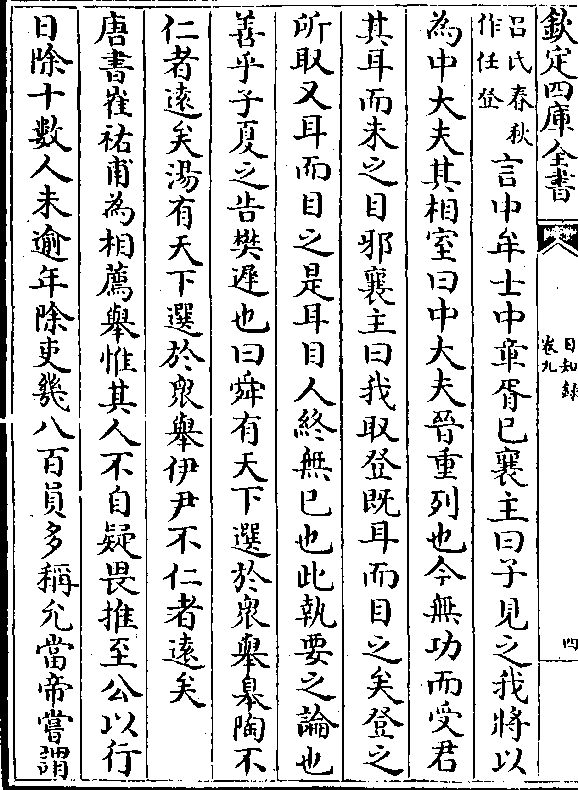 欽定四庫全書
日知錄
卷九
四
呂氏春秋
作任登
言中牟士中章胥已襄主曰子見之我將以
為中大夫其相室曰中大夫晉重列也今無功而受君
其耳而未之目邪襄主曰我取登既耳而目之矣登之
所取又耳而目之是耳目人終無已也此執要之論也
善乎子夏之告樊遲也曰舜有天下選於衆舉皋陶不
仁者遠矣湯有天下選於衆舉伊尹不仁者遠矣
唐書崔祐甫為相薦舉惟其人不自疑畏推至公以行
日除十數人未逾年除吏幾八百員多稱允當帝嘗謂